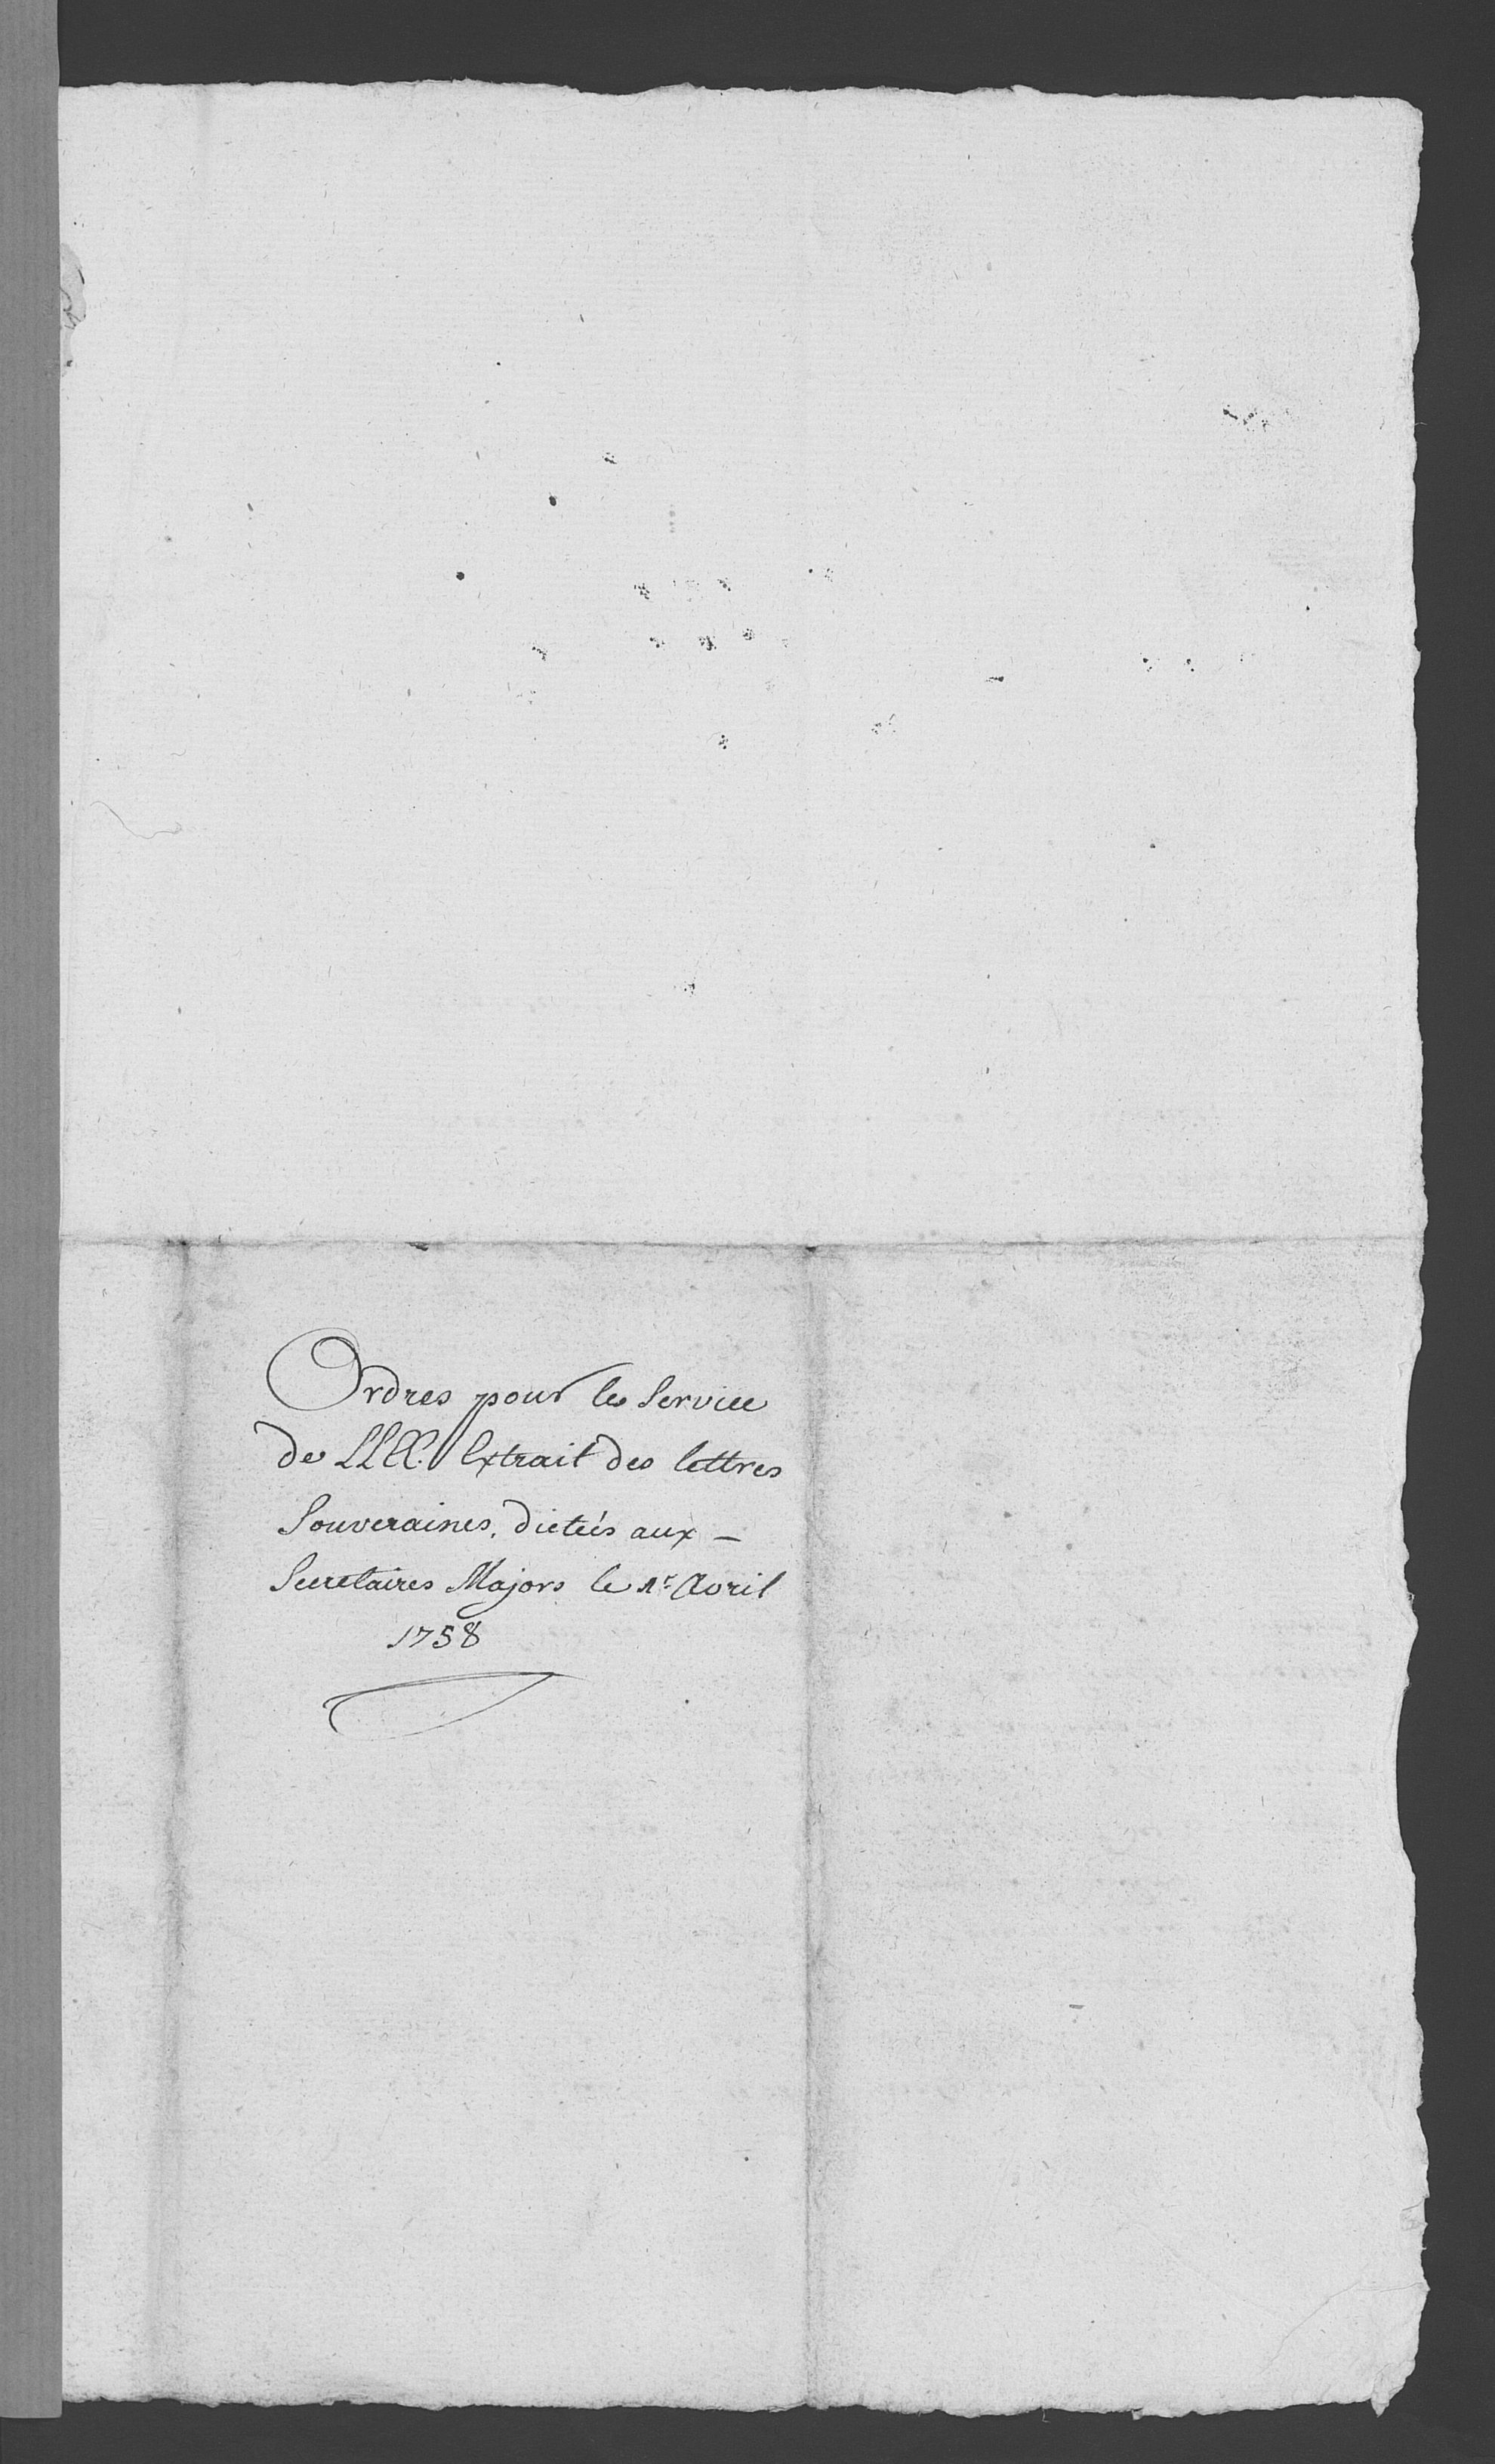 Ordres pour le Service
de LLEE. Extrait des lettres
Souveraines, dictées aux –
Secretaires Majors le 1r. Avril
1758